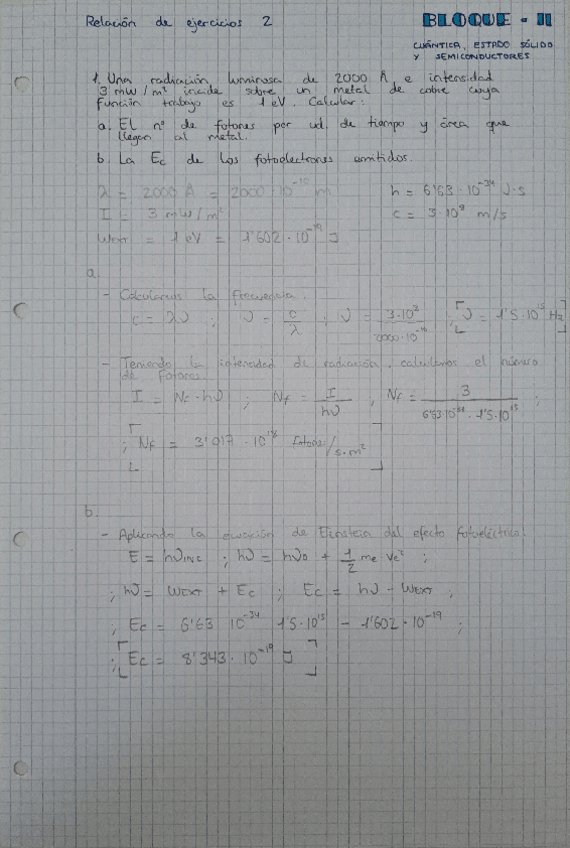 Relación de ejercicios 2
BLOQUE - II
CUÁNTICA, ESTADO SÓLIDO
Y SEMICONDUCTORES
1. Una radiación luminosa de 2000 Å e intensidad
3 mW/m² incide sobre un metal de cobre cuya
función trabajo es 1 eV. Calcular:
a. El nº de fotones por ud. de tiempo y área que
llegan al metal.
b. La Ec de los fotoelectrones emitidos.
λ = 2000 Å = 2000·10⁻¹⁰ m
h = 6'63·10⁻³⁴ J·s
I = 3 mW/m²
c = 3·10⁸ m/s
WEXT = 1 eV = 1'602·10⁻¹⁹ J
a.
- Calculamos la frecuencia.
c = λν ; ν = c/λ ; ν = 3·10⁸/2000·10⁻¹⁰ ; ν = 1'5·10¹⁵ Hz
- Teniendo la intensidad de radiación, calculamos el número
de fotones
I = Nf·hν ; Nf = I/hν ; Nf = 3/6'63·10⁻³⁴·1'5·10¹⁵ ;
; Nf = 3'017·10¹⁸ fotones/s·m²
b.
- Aplicando la ecuación de Einstein del efecto fotoeléctrico:
E = hνINC ; hν = hν₀ + 1/2 me ve² ;
; hν = WEXT + Ec ; Ec = hν - WEXT ;
; Ec = 6'63 10⁻³⁴ 1'5·10¹⁵ - 1'602·10⁻¹⁹ ;
; Ec = 8'343·10⁻¹⁹ J